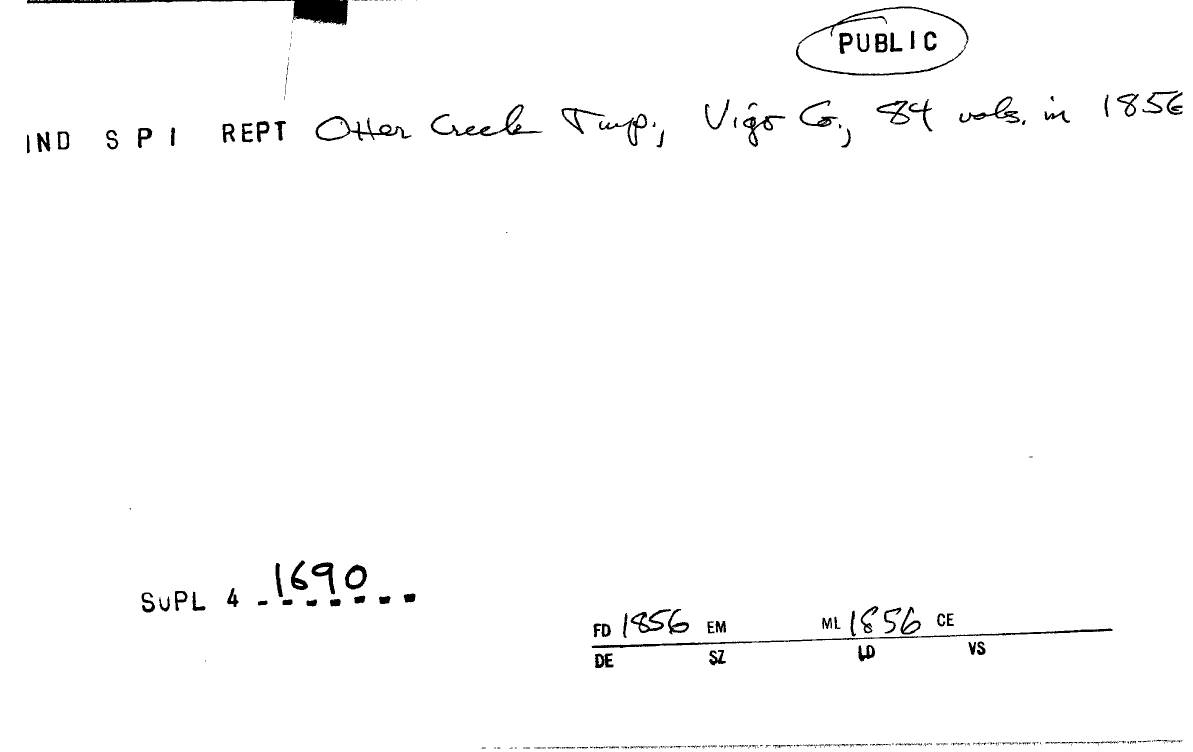 PUBLIC
IND S P I REPT Otter Creek Twp., Vigo Co., 84 vols. in 1856
SUPL 4 1690
FD 1856 EM ML 1856 CE
DE SZ LD VS